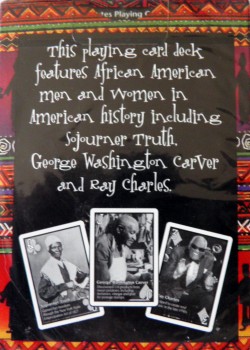 tes Playing C
This playing card deck
features African American
men and Women in
American history including
Sojourner Truth,
George Washington Carver
and Ray Charles.
George Washington Carver
Charles